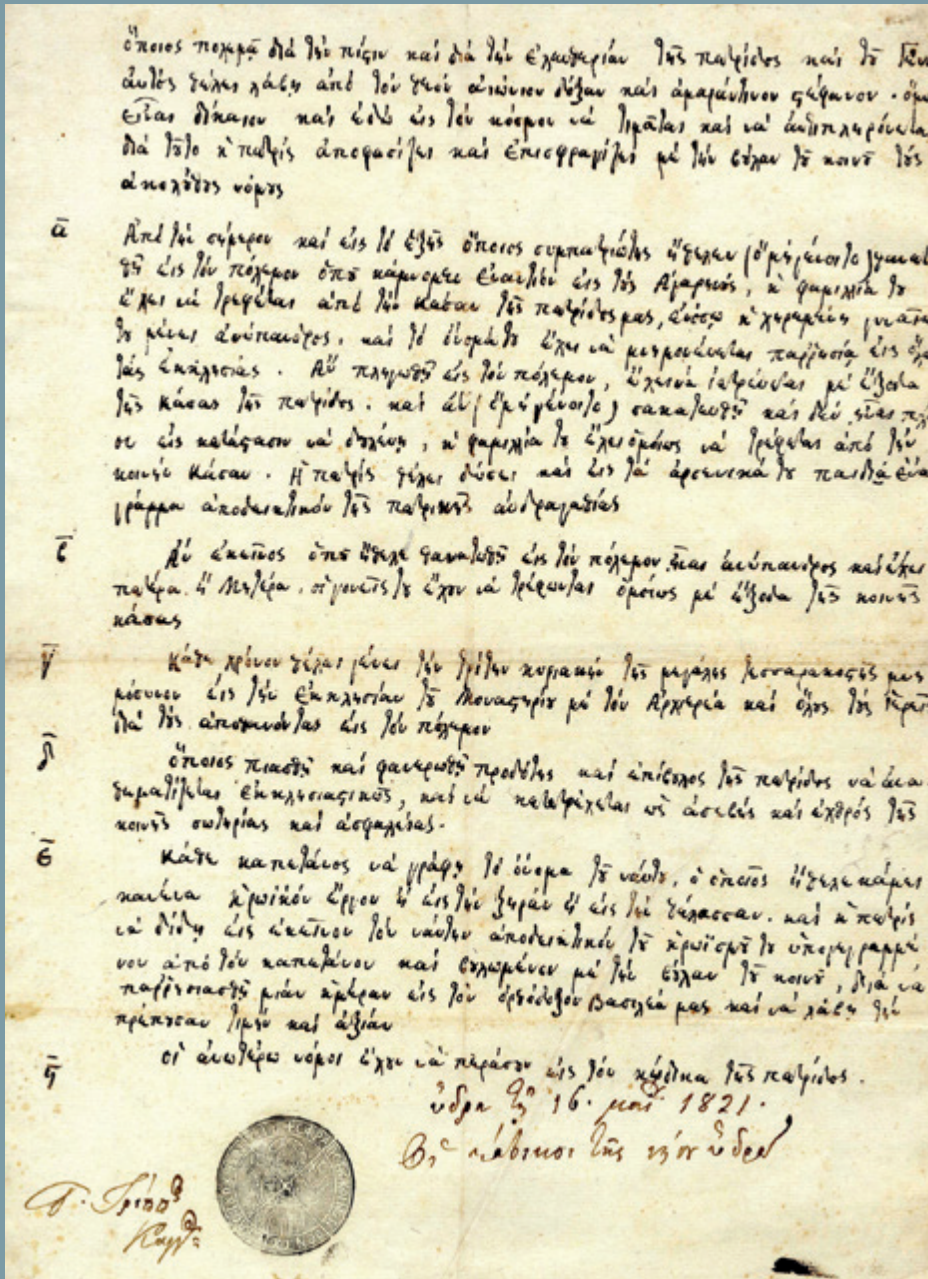 ὅποιος πολεμᾷ διά τήν πίςιν καί διά τήν ἐλευθερίαν τῆς πατρίδος καί τοῦ Γέν
αὐτός θέλει λάβῃ ἀπό τόν θεόν αἰώνιον δόξαν καί ἀμαράντινον ςέφανον · ὅμ
εἶναι δίκαιον καί ἐδῶ εἰς τόν κόσμον νά τιμᾶται καί νά ἀντιπληρόνεται
διά τȣ͂το ἡ πατρίς ἀποφασίζει καί ἐπισφραγίζει μέ τήν βȣ́λαν τȣ͂ κοινȣ͂ τȣ́ς
ἀκολȣ́θȣς νόμȣς
α Ἀπό τήν σήμερον καί εἰς τό ἑξῆς ὅποιος συμπατριώτης ἤθελεν (ὅ μή γένοιτο) θανατ
θῇ εἰς τόν πόλεμον ὁπȣ͂ κάμνομεν ἐναντίον εἰς τȣ́ς Ἀγαρηνȣ́ς, ἡ φαμιλλία τȣ
ἔχει νά τρέφεται ἀπό τήν κάσαν τῆς πατρίδος μας, ἐνόσῳ ἡ χηρεμένη γυναῖκα
τȣ μένει ἀνύπανδρος. καί τό ὄνομά τȣ ἔχει νά μνημονεύεται παῤῥησίᾳ εἰς ὅλ
τάς ἐκκλησίας. Ἄν πληγωθῇ εἰς τόν πόλεμον, ἔχει νά ἰατρεύεται μέ ἔξοδα
τῆς κάσας τῆς πατρίδος. καί ἄν (ὅ μή γένοιτο) σακατευθῇ καί δέν εἶναι πλέ
ον εἰς κατάςασιν νά δȣλεύῃ, ἡ φαμιλλία τȣ ἔχει ὁμοίως νά τρέφεται ἀπό τήν
κοινήν κάσαν. Ἡ πατρίς θέλει δώσει καί εἰς τά ἀρσενικά τȣ παιδιά ἕνα
γράμμα ἀποδεικτικόν τῆς πατρικῆς ἀνδραγαθίας
β Ἄν ἐκεῖνος ὁπȣ͂ ἤθελε θανατωθῇ εἰς τόν πόλεμον εἶναι ἀνύπανδρος καί ἔχει
πατέρα ἤ Μητέρα, οἱ γονεῖς τȣ ἔχȣν νά τρέφωνται ὁμοίως μέ ἔξοδα τῆς κοινῆς
κάσας
γ Κάθε χρόνον θέλει γίνει τήν τρίτην κυριακήν τῆς μεγάλης τεσσαρακοςῆς μνη
μόσυνον εἰς τήν ἐκκλησίαν τȣ͂ Μοναςηρίȣ μέ τόν Ἀρχιερέα καί ὅλȣς τȣ́ς ἱερεῖς
διά τȣ́ς ἀποθανόντας εἰς τόν πόλεμον
δ ὅποιος πιασθῇ καί φανερωθῇ προδότης καί ἐπίβȣλος τῆς πατρίδος νά ἀνα
θεματίζεται ἐκκλησιαςικῶς, καί νά κατατρέχεται ὡς ἀσεβής καί ἐχθρός τῆς
κοινῆς σωτηρίας καί ἀσφαλείας.
ε Κάθε καπετάνος νά γράφῃ τό ὄνομα τȣ͂ ναύτȣ, ὁ ὁποῖος ἤθελε κάμει
κανένα ἡρωϊκόν ἔργον ἤ εἰς τήν ξηράν ἤ εἰς τήν θάλασσαν. καί ἡ πατρίς
νά δίδῃ εἰς ἐκεῖνον τόν ναύτην ἀποδεικτικόν τȣ͂ ἡρωϊσμȣ͂ τȣ ὑπογεγραμμέ
νον ἀπό τόν καπετάνον καί βȣλωμένον μέ τήν βȣ́λαν τȣ͂ κοινȣ͂, διά νά
παῤῥησιασθῇ μιάν ἡμέραν εἰς τόν ὀρθόδοξον Βασιλέα μας καί νά λάβῃ τήν
πρέπȣσαν τιμήν καί ἀξίαν
ϛ οἱ ἀνωτέρω νόμοι ἔχȣν νά περάσȣν εἰς τόν κώδικα τῆς πατρίδος.
ὕδρα τῇ 16. μαΐ 1821.
Οἱ κάτοικοι τῆς νήσȣ ὕδρα